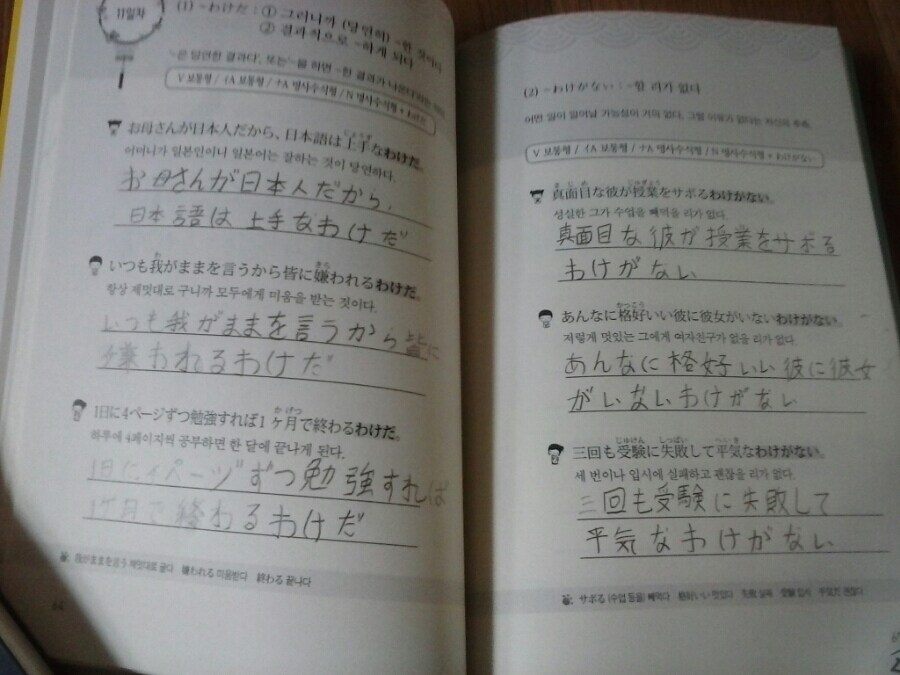 11일차
(1) ~わけだ : ① 그러니까 (당연히) ~한 것이다
② 결과적으로 ~하게 되다
'~은 당연한 결과다', 또는 '~를 하면 ~한 결과가
V 보통형 / イA 보통형 / ナA 명사수식형 / N 명사수식형 + わけだ
お母さんが日本人だから、日本語は上手なわけだ。
じょうず
어머니가 일본인이니 일본어는 잘하는 것이 당연하다.
お母さんが日本人だから、
日本語は上手なわけだ
いつも我がままを言うから皆に嫌われるわけだ。
わ きら
항상 제멋대로 구니까 모두에게 미움을 받는 것이다.
いつも我がままを言うから皆に
嫌われるわけだ
1日に4ページずつ勉強すれば1ヶ月で終わるわけだ。
かげつ
하루에 4페이지씩 공부하면 한 달에 끝나게 된다.
1日に4ページずつ勉強すれば
1ヶ月で終わるわけだ
我がままを言う 제멋대로 굴다 嫌われる 미움받다 終わる 끝나다
(2) ~わけがない : ~할 리가 없다
어떤 일이 일어날 가능성이 거의 없다, 그럴 이유가 없다는 자신의
V 보통형 / イA 보통형 / ナA 명사수식형 / N 명사수식형 + わけがない
まじめ じゅぎょう
真面目な彼が授業をサボるわけがない。
성실한 그가 수업을 빼먹을 리가 없다.
真面目な彼が授業をサボる
わけがない
かっこう
あんなに格好いい彼に彼女がいないわけがない。
저렇게 멋있는 그에게 여자친구가 없을 리가 없다.
あんなに格好いい彼に彼女
がいないわけがない
じゅけん しっぱい へいき
三回も受験に失敗して平気なわけがない。
세 번이나 입시에 실패하고 괜찮을 리가 없다.
三回も受験に失敗して
平気なわけがない
サボる (수업 등을) 빼먹다 格好いい 멋있다 失敗 실패 受験 입시 平気だ 괜찮다